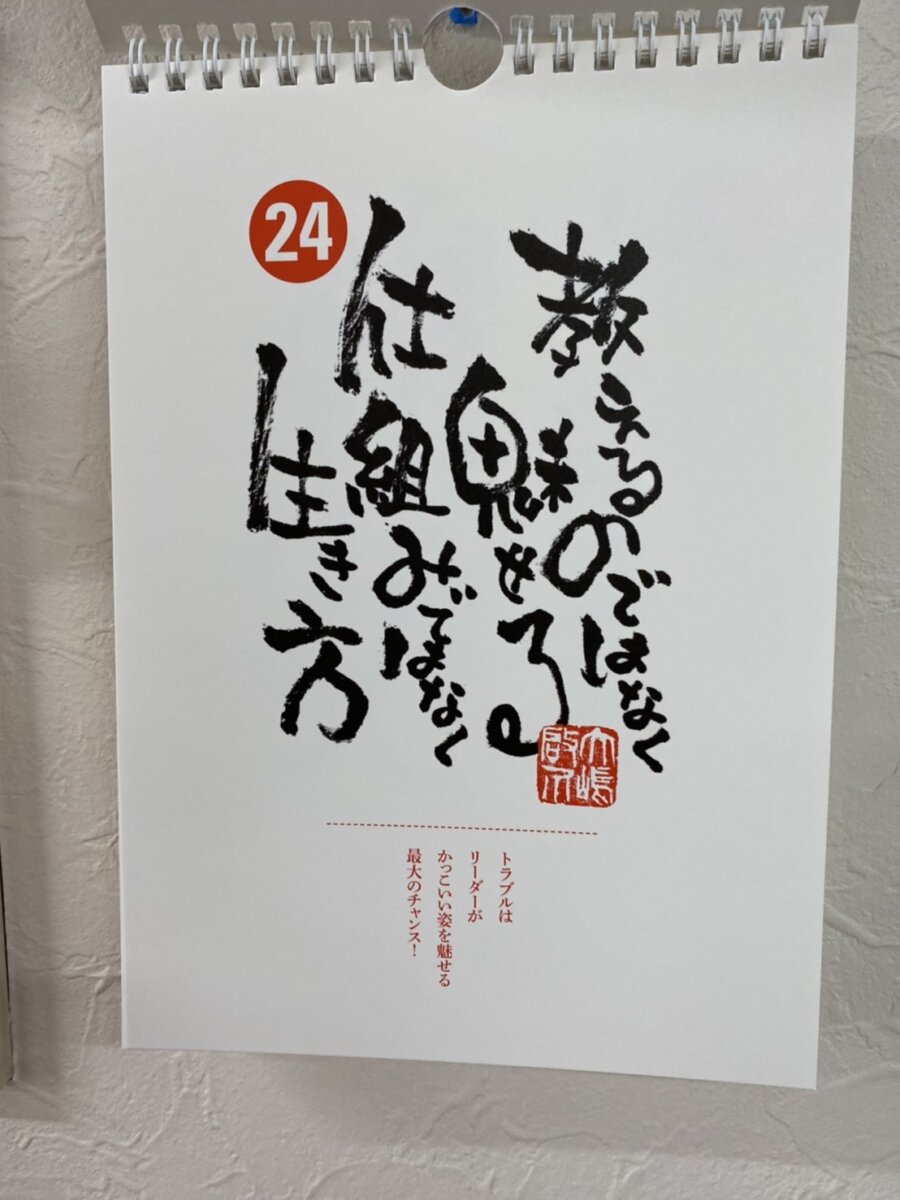 24
教えるのではなく
魅せる
仕組みではなく
生き方
大嶋
啓介
トラブルは
リーダーが
かっこいい姿を魅せる
最大のチャンス！